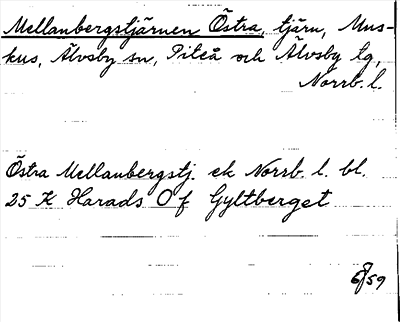 Mellanbergstjärnen Östra, tjärn, Mus-
kus, Älvsby sn, Piteå och Älvsby tg,
Norrb. l.
Östra Mellanbergstj. ek Norrb. l. bl.
25 K Harads O f Gyltberget
59